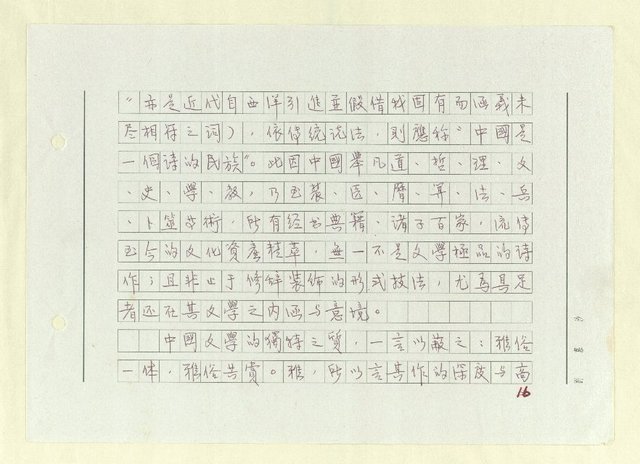 “亦是近代自西洋引進並假借我固有而涵義未
尽相符之词），依传统说法，則應称“中國是
一個詩的民族”。此因中國舉凡道、哲、理、文
、史、學、教，乃至裝、医、曆、算、法、兵
、卜筮艺術，所有经书典籍、诸子百家，流传
至今的文化資產精華，無一不是文學極品的詩
作；且非止于修辞装饰的形式技法，尤為具足
者还在其文學之内涵与意境。
中國文學的獨特之質，一言以蔽之：雅俗
一体，雅俗共賞。雅，所以言其作的深度与高
16